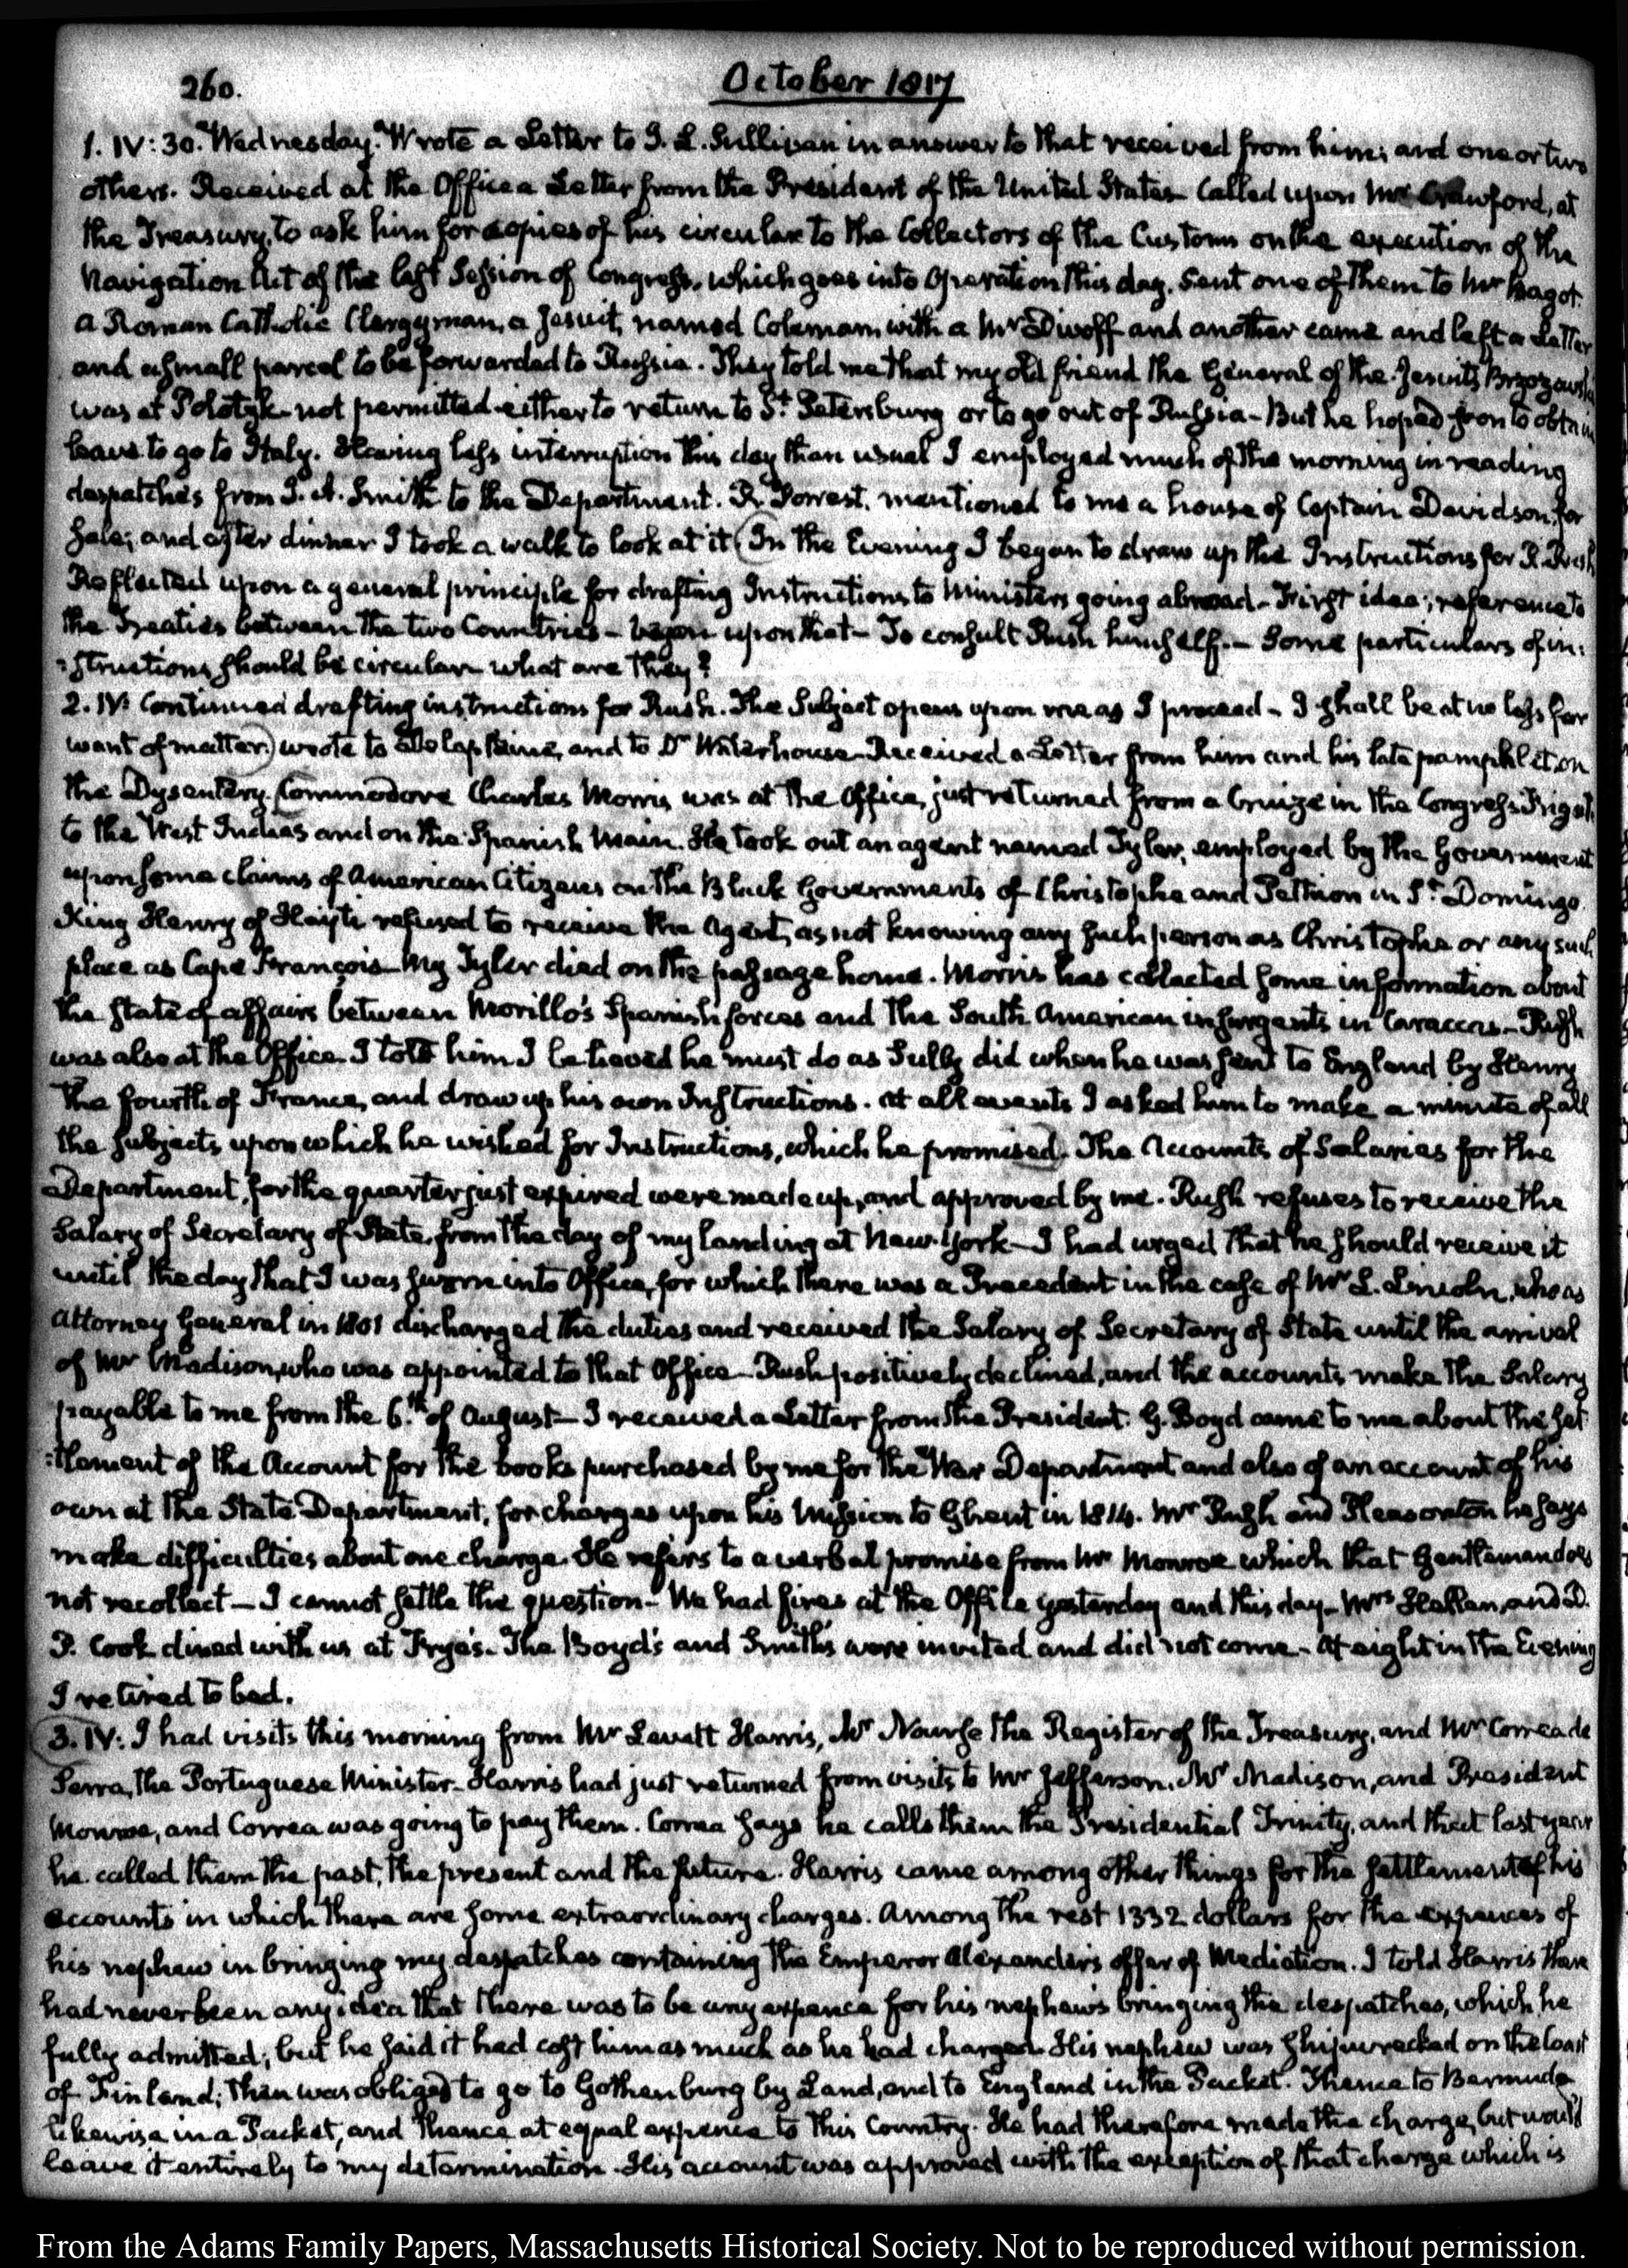 260.
October 1817
1. IV:30. Wednesday. Wrote a Letter to J. L. Sullivan in answer to that received from him; and one or two
others. Received at the Office a Letter from the President of the United States. Called upon Mr Crawford, at
the Treasury, to ask him for copies of his circular to the Collectors of the Customs on the execution of the
Navigation Act of the last Session of Congress, which goes into Operation this day. Sent one of them to Mr Bagot.
a Roman Catholic Clergyman, a Jesuit, named Coleman, with a Mr Divoff and another came and left a Letter
and a small parcel to be forwarded to Russia. They told me that my old friend the General of the Jesuits Brzozowski
was at Polotzk not permitted either to return to St. Petersburg or to go out of Russia - But he hoped soon to obtain
leave to go to Italy. Having less interruption this day than usual I employed much of the morning in reading
despatches from J. A. Smith to the Department. R. Forrest, mentioned to me a house of Captain Davidson, for
sale; and after dinner I took a walk to look at it (In the Evening I began to draw up the Instructions for R. Rush
Reflected upon a general principle for drafting Instructions to Ministers going abroad - First idea; reference to
the Treaties between the two Countries - began upon that - To consult Rush himself. - Some particulars of in:
:structions should be circular what are they?
2. IV: Continued drafting instructions for Rush. The Subject opens upon me as I proceed - I shall be at no loss for
want of matter.) wrote to Delaplaine, and to Dr Waterhouse - Received a Letter from him and his late pamphlet, on
the Dysentery. (Commodore Charles Morris was at the Office, just returned from a Cruize in the Congress Frigate,
to the West Indies and on the Spanish Main. He took out an agent named Tyler, employed by the Government
upon some claims of American Citizens on the Black Governments of Christophe and Pethion in St. Domingo.
King Henry of Hayti refused to receive the Agent, as not knowing any such person as Christophe or any such
place as Cape François - Mr Tyler died on the passage home. Morris has collected some information about
the state of affairs between Morillo's Spanish forces and the South American insurgents in Caraccas - Rush
was also at the Office. I told him I believed he must do as Sully did when he was sent to England by Henry
the fourth of France, and draw up his own Instructions. at all events I asked him to make a minute of all
the subjects upon which he wished for Instructions, which he promised.) The Accounts of Salaries for the
Department, for the quarter just expired were made up, and approved by me. Rush refuses to receive the
Salary of Secretary of State, from the day of my landing at New-York - I had urged that he should receive it
until the day that I was sworn into Office, for which there was a Precedent in the case of Mr L. Lincoln, who as
Attorney General in 1801 discharged the duties and received the Salary of Secretary of State until the arrival
of Mr Madison, who was appointed to that Office - Rush positively declined, and the accounts make the Salary
payable to me from the 6.th of August - I received a Letter from the President. G. Boyd came to me about the set
:tlement of the Account for the books purchased by me for the War Department and also of an account of his
own at the State Department, for charges upon his Mission to Ghent in 1814. Mr Rush and Pleasonton he says
make difficulties about one charge. He refers to a verbal promise from Mr Monroe which that Gentleman does
not recollect - I cannot settle the question - We had fires at the Office yesterday and this day - Mrs Hellen, and D.
P. Cook dined with us at Frye's. The Boyd's and Smith's were invited and did not come - At eight in the Evening
I retired to bed.
3. IV: I had visits this morning from Mr Levett Harris, Mr Nourse the Register of the Treasury, and Mr Correa de
Serra, the Portuguese Minister - Harris had just returned from visits to Mr Jefferson, Mr Madison, and President
Monroe, and Correa was going to pay them. Correa says he calls them the Presidential Trinity, and that last year
he called them the past, the present and the future. Harris came among other things for the settlement of his
accounts in which there are some extraordinary charges. Among the rest 1332 dollars for the expences of
his nephew in bringing my despatches containing the Emperor Alexander's offer of Mediation. I told Harris there
had never been any idea that there was to be any expence for his nephew's bringing the despatches, which he
fully admitted; but he said it had cost him as much as he had charged. His nephew was shipwrecked on the Coast
of Finland; then was obliged to go to Gothenburg by Land, and to England in the Packet. Thence to Bermuda
likewise in a Packet, and thence at equal expence to this Country. He had therefore made the charge, but would
leave it entirely to my determination. His account was approved with the exception of that charge which is
From the Adams Family Papers, Massachusetts Historical Society. Not to be reproduced without permission.